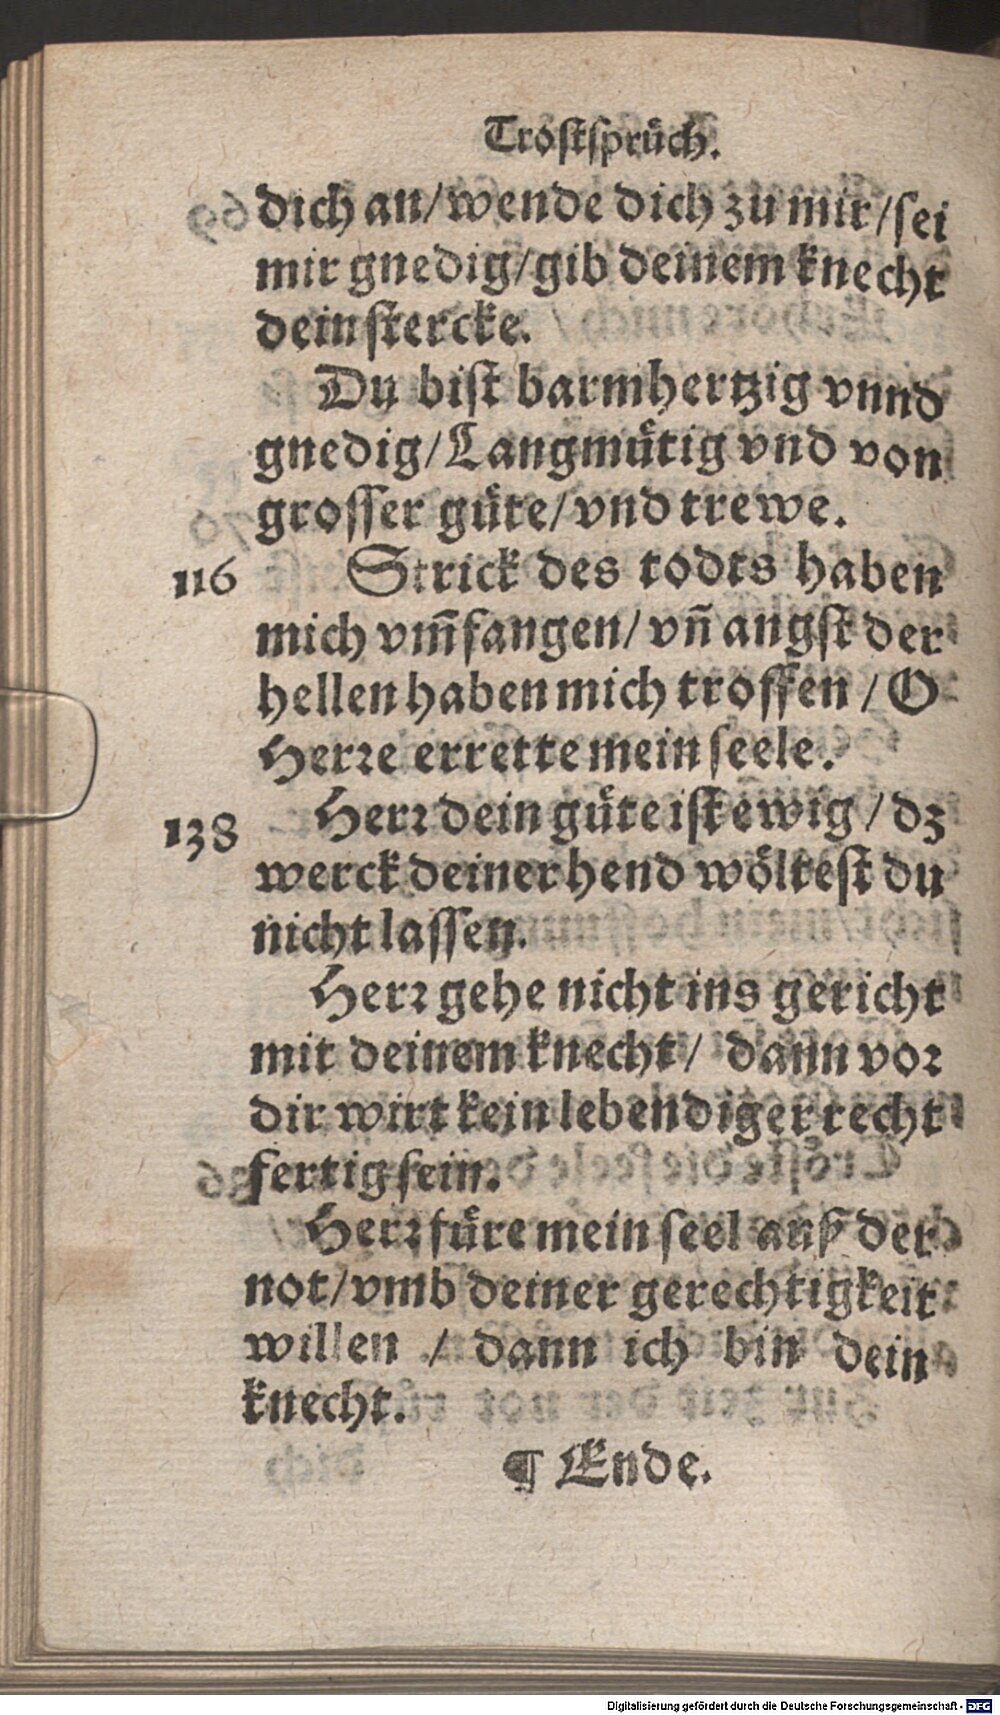 Trostsprüch.
dich an/wende dich zu mir/sei
mir gnedig/gib deinem knecht
dein stercke.
Du bist barmhertzig vnnd
gnedig/Langmütig vnd von
grosser güte/vnd trewe.
116 Strick des todts haben
mich vm̄fangen/vn̄ angst der
hellen haben mich troffen / O
Herre errette mein seele.
138 Herr dein güte ist ewig / dz
werck deiner hend wöltest du
nicht lassen.
Herr gehe nicht ins gericht
mit deinem knecht/ dann vor
dir wirt kein lebendiger recht
fertig sein.
Herr füre mein seel auß der
not/vmb deiner gerechtigkeit
willen / dann ich bin dein
knecht.
¶ Ende.
Digitalisierung gefördert durch die Deutsche Forschungsgemeinschaft - DFG